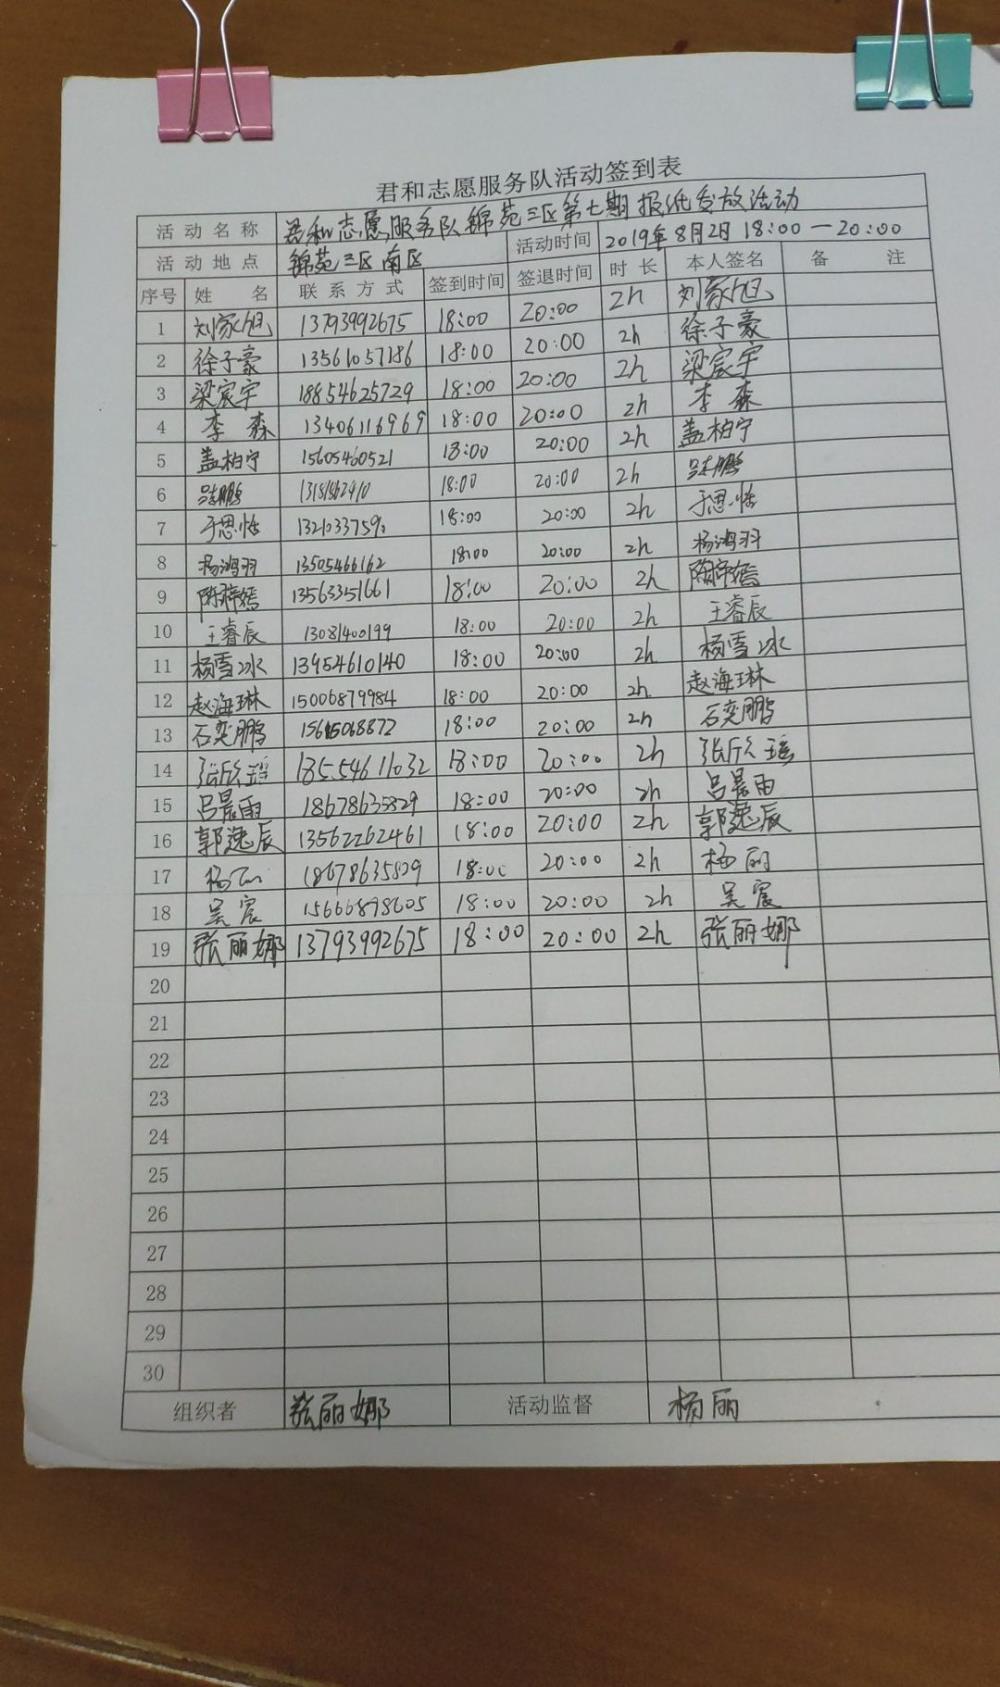 君和志愿服务队活动签到表
活动名称 君和志愿服务队锦苑三区第七期报纸发放活动
活动地点 锦苑三区南区 活动时间 2019年8月2日 18:00—20:00
序号 姓名 联系方式 签到时间 签退时间 时长 本人签名 备注
1 刘家旭 13793992675 18:00 20:00 2h 刘家旭
2 徐子豪 13561057186 18:00 20:00 2h 徐子豪
3 梁宸宇 18854625729 18:00 20:00 2h 梁宸宇
4 李森 13406116969 18:00 20:00 2h 李森
5 盖柏宁 15605460521 18:00 20:00 2h 盖柏宁
6 18:00 20:00 2h
7 于思恬 18:00 20:00 2h 于思恬
8 杨鸿羽 13505466162 18:00 20:00 2h 杨鸿羽
9 13563351661 18:00 20:00 2h
10 王睿辰 13081400199 18:00 20:00 2h 王睿辰
11 杨雪冰 13954610140 18:00 20:00 2h 杨雪冰
12 赵海琳 15006879984 18:00 20:00 2h 赵海琳
13 石奕鹏 18:00 20:00 2h 石奕鹏
14 张欣瑶 18554611032 18:00 20:00 2h 张欣瑶
15 吕晨雨 18678635829 18:00 20:00 2h 吕晨雨
16 郭逸辰 13562262461 18:00 20:00 2h 郭逸辰
17 杨丽 18678635829 18:00 20:00 2h 杨丽
18 吴宸 15666898605 18:00 20:00 2h 吴宸
19 张丽娜 13793992675 18:00 20:00 2h 张丽娜
20
21
22
23
24
25
26
27
28
29
30
组织者 张丽娜 活动监督 杨丽